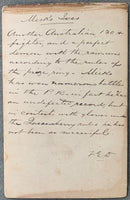 Meek's Ives
Another Australian 130 lb
fighter, and a perfect
demon with the
according to the rules of
the prize ring. Meeks
has won numerous battles
in the P. Ring fact he has
an undefeated record, but
in contests with gloves under
the Queensberry rules has
not been as successful